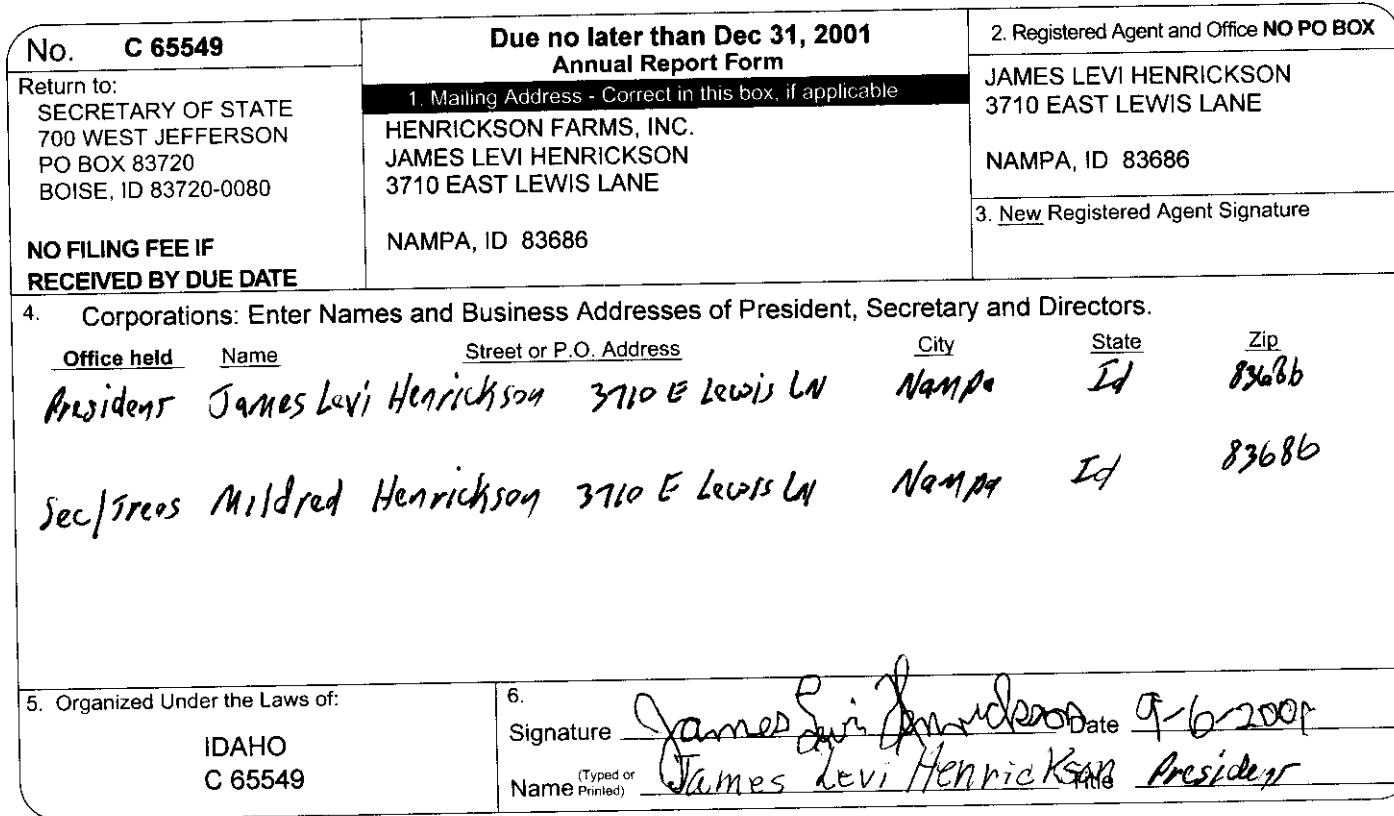 No. C 65549
Return to:
SECRETARY OF STATE
700 WEST JEFFERSON
PO BOX 83720
BOISE, ID 83720-0080
NO FILING FEE IF
RECEIVED BY DUE DATE
Due no later than Dec 31, 2001
Annual Report Form
1. Mailing Address - Correct in this box, if applicable
HENRICKSON FARMS, INC.
JAMES LEVI HENRICKSON
3710 EAST LEWIS LANE
NAMPA, ID 83686
2. Registered Agent and Office NO PO BOX
JAMES LEVI HENRICKSON
3710 EAST LEWIS LANE
NAMPA, ID 83686
3. New Registered Agent Signature
4. Corporations: Enter Names and Business Addresses of President, Secretary and Directors.
Office held Name Street or P.O. Address City State Zip
President James Levi Henrickson 3710 E Lewis LN Nampa Id 83686
Sec/Treas Mildred Henrickson 3710 E Lewis LN Nampa Id 83686
5. Organized Under the Laws of:
IDAHO
C 65549
6.
Signature James Levi Henrickson Date 9-6-2001
Name (Typed or Printed) James Levi Henrickson Title President